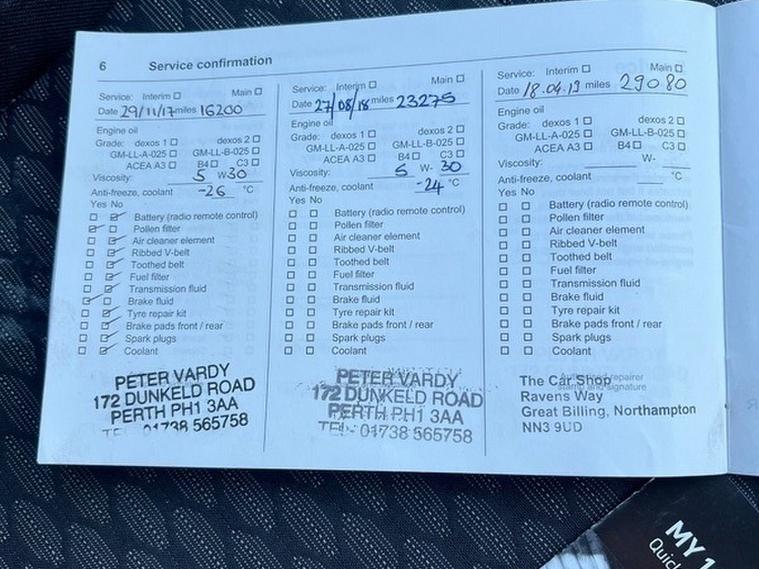 6 Service confirmation
Service: Interim ☐ Main ☐
Date 29/11/17 miles 16200
Engine oil
Grade: dexos 1 ☐ dexos 2 ☐
GM-LL-A-025 ☐ GM-LL-B-025 ☐
ACEA A3 ☐ B4 ☐ C3 ☐
Viscosity: 5 W-30
Anti-freeze, coolant -26 °C
Yes No
☐ ☑ Battery (radio remote control)
☑ ☐ Pollen filter
☐ ☑ Air cleaner element
☐ ☑ Ribbed V-belt
☐ ☑ Toothed belt
☐ ☑ Fuel filter
☐ ☑ Transmission fluid
☑ ☐ Brake fluid
☐ ☑ Tyre repair kit
☐ ☑ Brake pads front / rear
☐ ☑ Spark plugs
☐ ☑ Coolant
PETER VARDY
172 DUNKELD ROAD
PERTH PH1 3AA
TEL- 01738 565758
Service: Interim ☐ Main ☐
Date 27/08/18 miles 23275
Engine oil
Grade: dexos 1 ☐ dexos 2 ☐
GM-LL-A-025 ☐ GM-LL-B-025 ☐
ACEA A3 ☐ B4 ☐ C3 ☐
Viscosity: 5 W- 30
Anti-freeze, coolant -24 °C
Yes No
☐ ☐ Battery (radio remote control)
☐ ☐ Pollen filter
☐ ☐ Air cleaner element
☐ ☐ Ribbed V-belt
☐ ☐ Toothed belt
☐ ☐ Fuel filter
☐ ☐ Transmission fluid
☐ ☐ Brake fluid
☐ ☐ Tyre repair kit
☐ ☐ Brake pads front / rear
☐ ☐ Spark plugs
☐ ☐ Coolant
PETER VARDY
172 DUNKELD ROAD
PERTH PH1 3AA
TEL- 01738 565758
Service: Interim ☐ Main ☐
Date 18.04.19 miles 29080
Engine oil
Grade: dexos 1 ☐ dexos 2 ☐
GM-LL-A-025 ☐ GM-LL-B-025 ☐
ACEA A3 ☐ B4 ☐ C3 ☐
Viscosity: W-
Anti-freeze, coolant °C
Yes No
☐ ☐ Battery (radio remote control)
☐ ☐ Pollen filter
☐ ☐ Air cleaner element
☐ ☐ Ribbed V-belt
☐ ☐ Toothed belt
☐ ☐ Fuel filter
☐ ☐ Transmission fluid
☐ ☐ Brake fluid
☐ ☐ Tyre repair kit
☐ ☐ Brake pads front / rear
☐ ☐ Spark plugs
☐ ☐ Coolant
Authorised repairer
stamp and signature
The Car Shop
Ravens Way
Great Billing, Northampton
NN3 9UD
MY 1
Quic